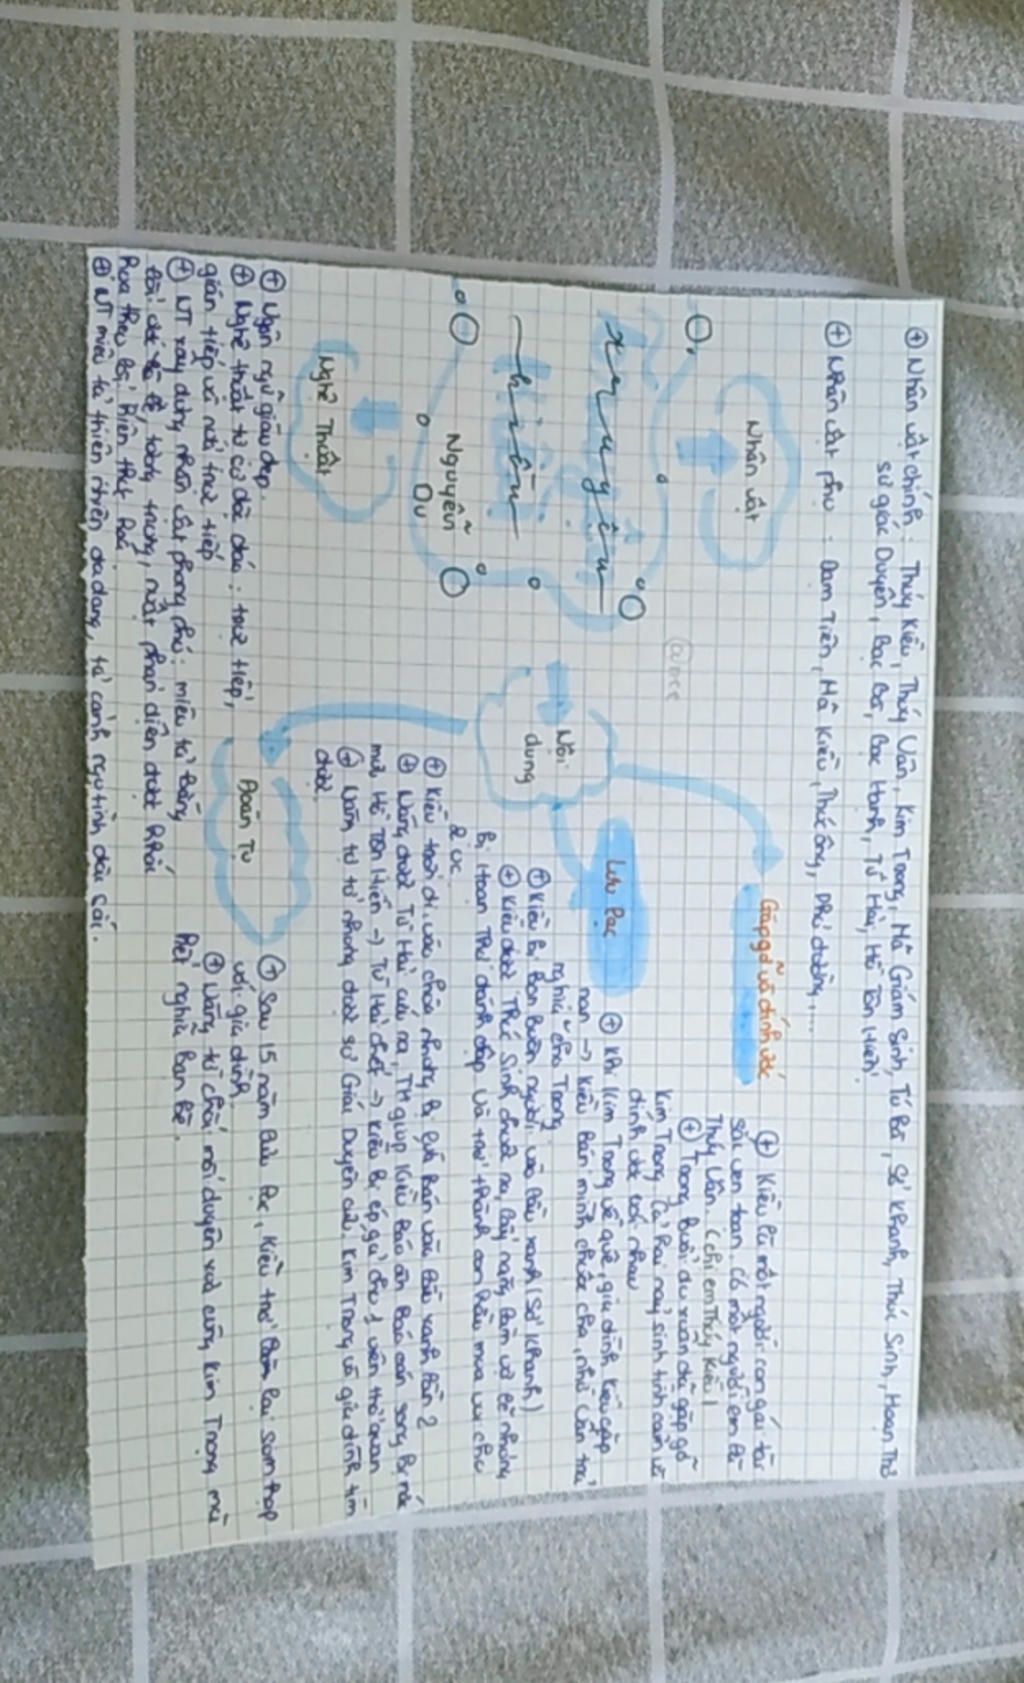 ⊕ Nhân vật chính : Thúy Kiều, Thúy Vân, Kim Trọng, Mã Giám Sinh, Tú Bà, Sở Khanh, Thúc Sinh, Hoạn Thư
sư giác Duyên, Bạc Bà, Bạc Hạnh, Từ Hải, Hồ Tôn Hiến.
⊕ Nhân vật phụ : Đạm Tiên, Mã Kiều, Thúc Ông, Phú đường,...
Nhân vật
Truyện
Kiều
Nguyễn
Du
Nội
dung
Gặp gỡ và đính ước
⊕ Kiều là một người con gái tài
sắc vẹn toàn. có một người em là
Thúy Vân. (chị em Thúy Kiều)
⊕ Trong buổi du xuân đã gặp gỡ
Kim Trọng. Cả hai nảy sinh tình cảm và
đính ước với nhau
Lưu lạc
⊕ Khi Kim Trọng về quê, gia đình Kiều gặp
nạn → Kiều bán mình chuộc cha, nhờ Vân trả
nghĩa cho Trọng
⊕ Kiều bị bọn buôn người vào lầu xanh (Sở Khanh)
⊕ Kiều được Thúc Sinh chuộc ra, lấy nàng làm vợ lẽ nhưng
bị Hoạn Thư đánh đập và trở thành con hầu mua vui cho
2 vc.
⊕ Kiều trốn đi vào chùa nhưng bị lừa bán vào lầu xanh lần 2
⊕ Nàng được Từ Hải cứu ra, TH giúp Kiều báo ân báo oán song bị mắc
mưu Hồ Tôn Hiến → Từ Hải chết → Kiều bị ép gả cho 1 viên thổ quan
⊕ Nàng tự tử nhưng được sư Giác Duyên cứu, Kim Trọng và gia đình tìm
được.
Đoàn Tụ
⊕ Sau 15 năm lưu lạc, Kiều trở lại sum họp
với gia đình.
⊕ Nàng từ chối mối duyên xưa cùng Kim Trọng mà
kết nghĩa bạn bè.
Nghệ Thuật
⊕ Ngôn ngữ giàu đẹp.
⊕ Nghệ thuật tự sự độc đáo : trực tiếp,
gián tiếp và nửa trực tiếp
⊕ NT xây dựng nhân vật phong phú : miêu tả bằng
lối ước lệ, tượng trưng, nvật phản diện được khắc
họa theo lối hiện thực hoá.
⊕ NT miêu tả thiên nhiên đa dạng, tả cảnh ngụ tình đặc sắc.